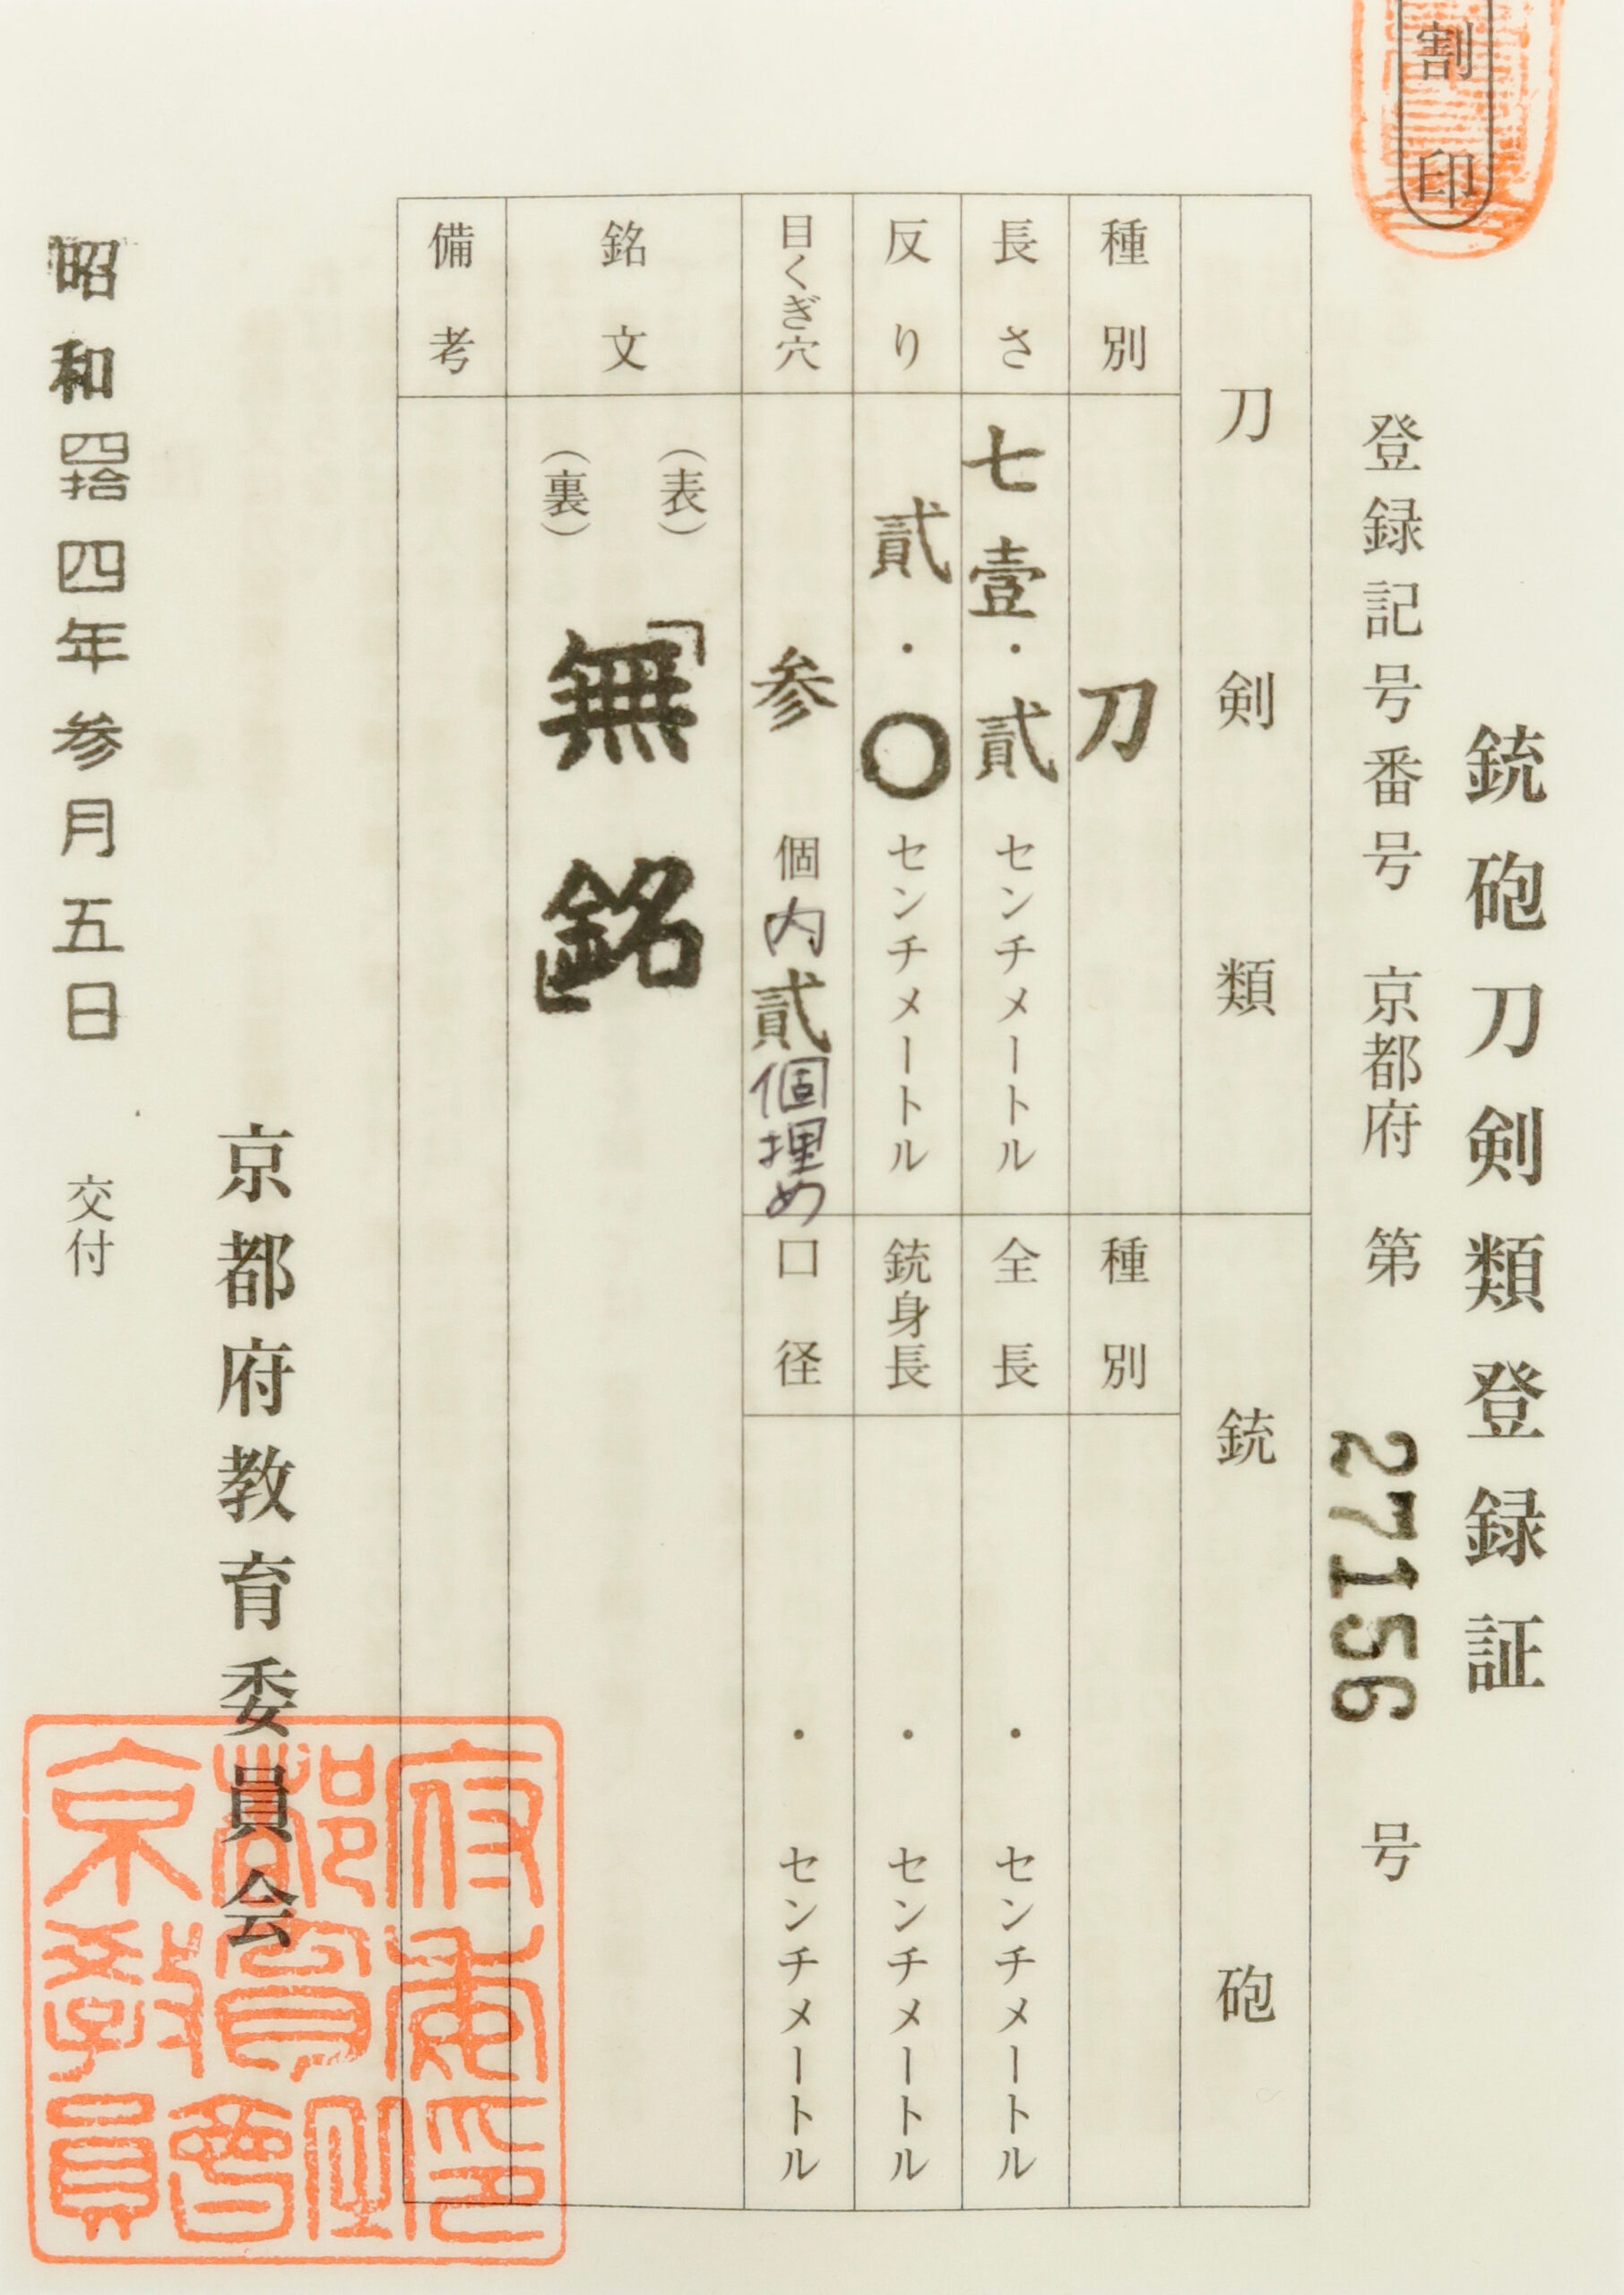 割印
銃砲刀剣類登録証
登録記号番号 京都府 第 27156 号
刀剣類
銃砲
種別 刀
長さ 七壹.貳 センチメートル
反り 貳.〇 センチメートル
目くぎ穴 参 個内貳個埋め
種別
全長 . センチメートル
銃身長 . センチメートル
口径 . センチメートル
銘文 (表) (裏) 「無銘」
備考
京都府教育委員会
昭和四拾四年参月五日 交付